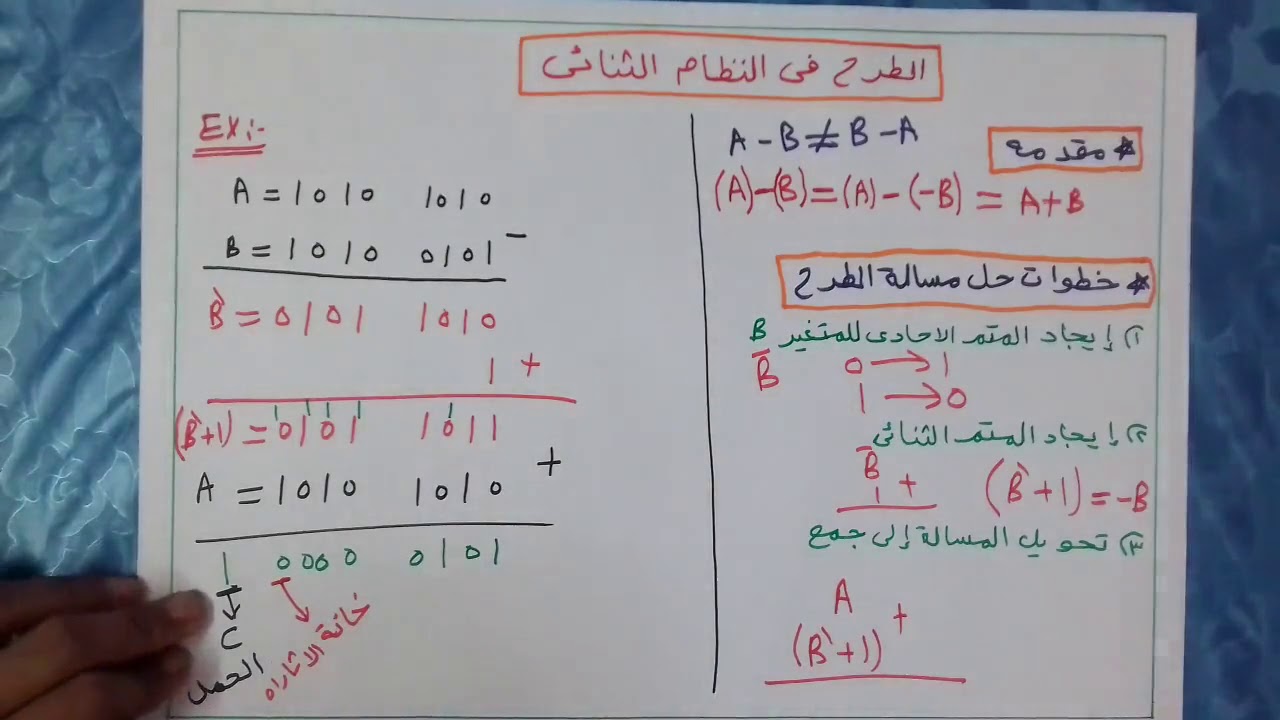 الطرح فى النظام الثنائى
* مقدمه
A - B ≠ B - A
(A)-(B) = (A) - (-B) = A+B
* خطوات حل مسالة الطرح
١) إيجاد المتمم الاحادى للمتغير B
B̅ 0 → 1
1 → 0
٢) إيجاد المتمم الثنائى
B̅
1 +
(B`+1) = -B
٣) تحويل المسالة إلى جمع
A
(B`+1) +
EX:-
A = 1010 1010
B = 1010 0101 -
B` = 0101 1010
1 +
1 1 1 1 1
(B`+1) = 0101 1011
A = 1010 1010 +
1 0000 0101
C
الحمل
خانة الاشاره